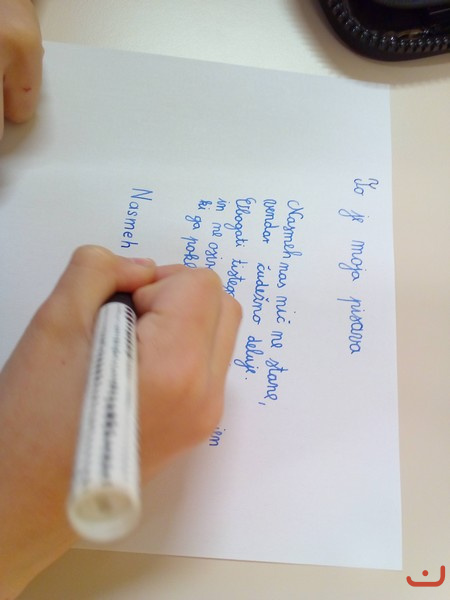 To je moja pisava
Nasmeh nas nič ne stane,
vendar čudežno deluje.
Obogati tistega
in ne
ki ga
Nasmeh